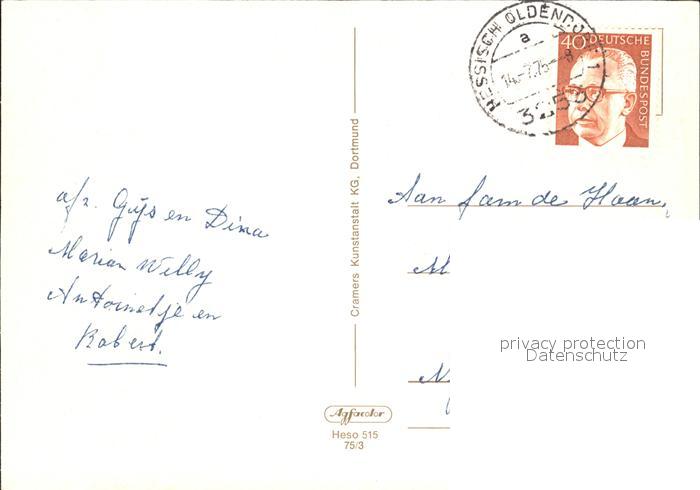 HESSISCH OLDENDORF 1
a
14.-7.75- 8
3253
40 DEUTSCHE BUNDESPOST
Aan fam de Haan,
M
N
privacy protection
Datenschutz
a/z. Gijs en Dina
Marian Willy
Antoinetje en
Robert.
Cramers Kunstanstalt KG, Dortmund
Agfacolor
Heso 515
75/3